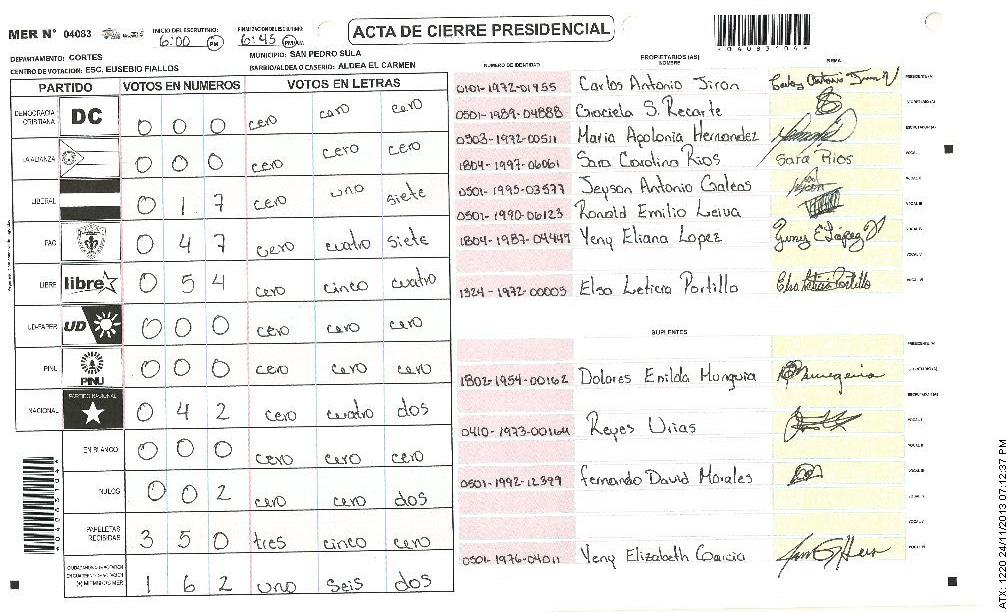 MER N° 04083
INICIO DEL ESCRUTINIO: 6:00 PM
FINALIZACION DEL ESCRUTINIO: 6:45 PM
ACTA DE CIERRE PRESIDENCIAL
*04083104*
DEPARTAMENTO: CORTES
MUNICIPIO: SAN PEDRO SULA
CENTRO DE VOTACION: ESC. EUSEBIO FIALLOS
BARRIO/ALDEA O CASERIO: ALDEA EL CARMEN
PARTIDO VOTOS EN NUMEROS VOTOS EN LETRAS
DEMOCRACIA CRISTIANA DC 0 0 0 cero cero cero
LA ALIANZA 0 0 0 cero cero cero
LIBERAL 0 1 7 cero uno siete
PAC 0 4 7 cero cuatro siete
LIBRE libre 0 5 4 cero cinco cuatro
UD-FAPER UD 0 0 0 cero cero cero
PINU PINU 0 0 0 cero cero cero
NACIONAL PARTIDO NACIONAL 0 4 2 cero cuatro dos
EN BLANCO 0 0 0 cero cero cero
NULOS 0 0 2 cero cero dos
PAPELETAS RECIBIDAS 3 5 0 tres cinco cero
1 6 2 uno seis dos
NUMERO DE IDENTIDAD PROPIETARIOS (AS) NOMBRE FIRMA
0101-1972-01455 Carlos Antonio Jiron PRESIDENTE (A)
0501-1989-04888 Graciela S. Recarte SECRETARIO (A)
0503-1972-00511 Maria Apolonia Hernandez ESCRUTADOR (A)
1804-1997-06061 Sara Carolina Rios Sara Rios VOCAL I
0501-1995-03577 Jeyson Antonio Galeas VOCAL II
0501-1990-06123 Ronald Emilio Leiva VOCAL III
1804-1987-04447 Yeny Eliana Lopez Yeny E López VOCAL IV
1324-1972-00005 Elsa Leticia Portillo Elsa Leticia Portillo
SUPLENTES
PRESIDENTE (A)
1802-1954-00162 Dolores Enilda Munguia SECRETARIO (A)
ESCRUTADOR (A)
0410-1973-00164 Reyes Urias VOCAL I
VOCAL II
0501-1992-12399 Fernando David Morales VOCAL III
VOCAL IV
VOCAL V
0501-1976-04011 Yeny Elizabeth Garcia
ATX: 1220 24/11/2013 07:12:37 PM